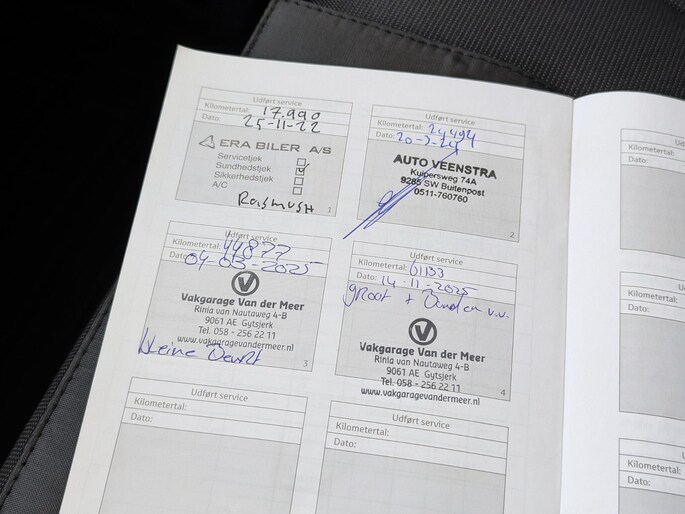 Udført service
Kilometertal: 17.990
Dato: 25-11-22
ERA BILER A/S
Servicetjek
Sundhedstjek
Sikkerhedstjek
A/C
Rasmus H
1
Udført service
Kilometertal: 24494
Dato: 20-2-24
AUTO VEENSTRA
Kuipersweg 74A
9285 SW Buitenpost
0511-760760
2
Udført service
Kilometertal: 44877
Dato: 04-03-2025
Vakgarage Van der Meer
Rinia van Nautaweg 4-B
9061 AE Gytsjerk
Tel. 058 - 256 22 11
www.vakgaragevandermeer.nl
kleine Beurt
3
Udført service
Kilometertal: 61133
Dato: 14-11-2025
groot + v.v.
Vakgarage Van der Meer
Rinia van Nautaweg 4-B
9061 AE Gytsjerk
Tel. 058 - 256 22 11
www.vakgaragevandermeer.nl
4
Udført service
Kilometertal:
Dato:
Udført service
Kilometertal:
Dato:
Kilometertal:
Dato:
Kilometertal:
Dato:
Kilometertal:
Dato: